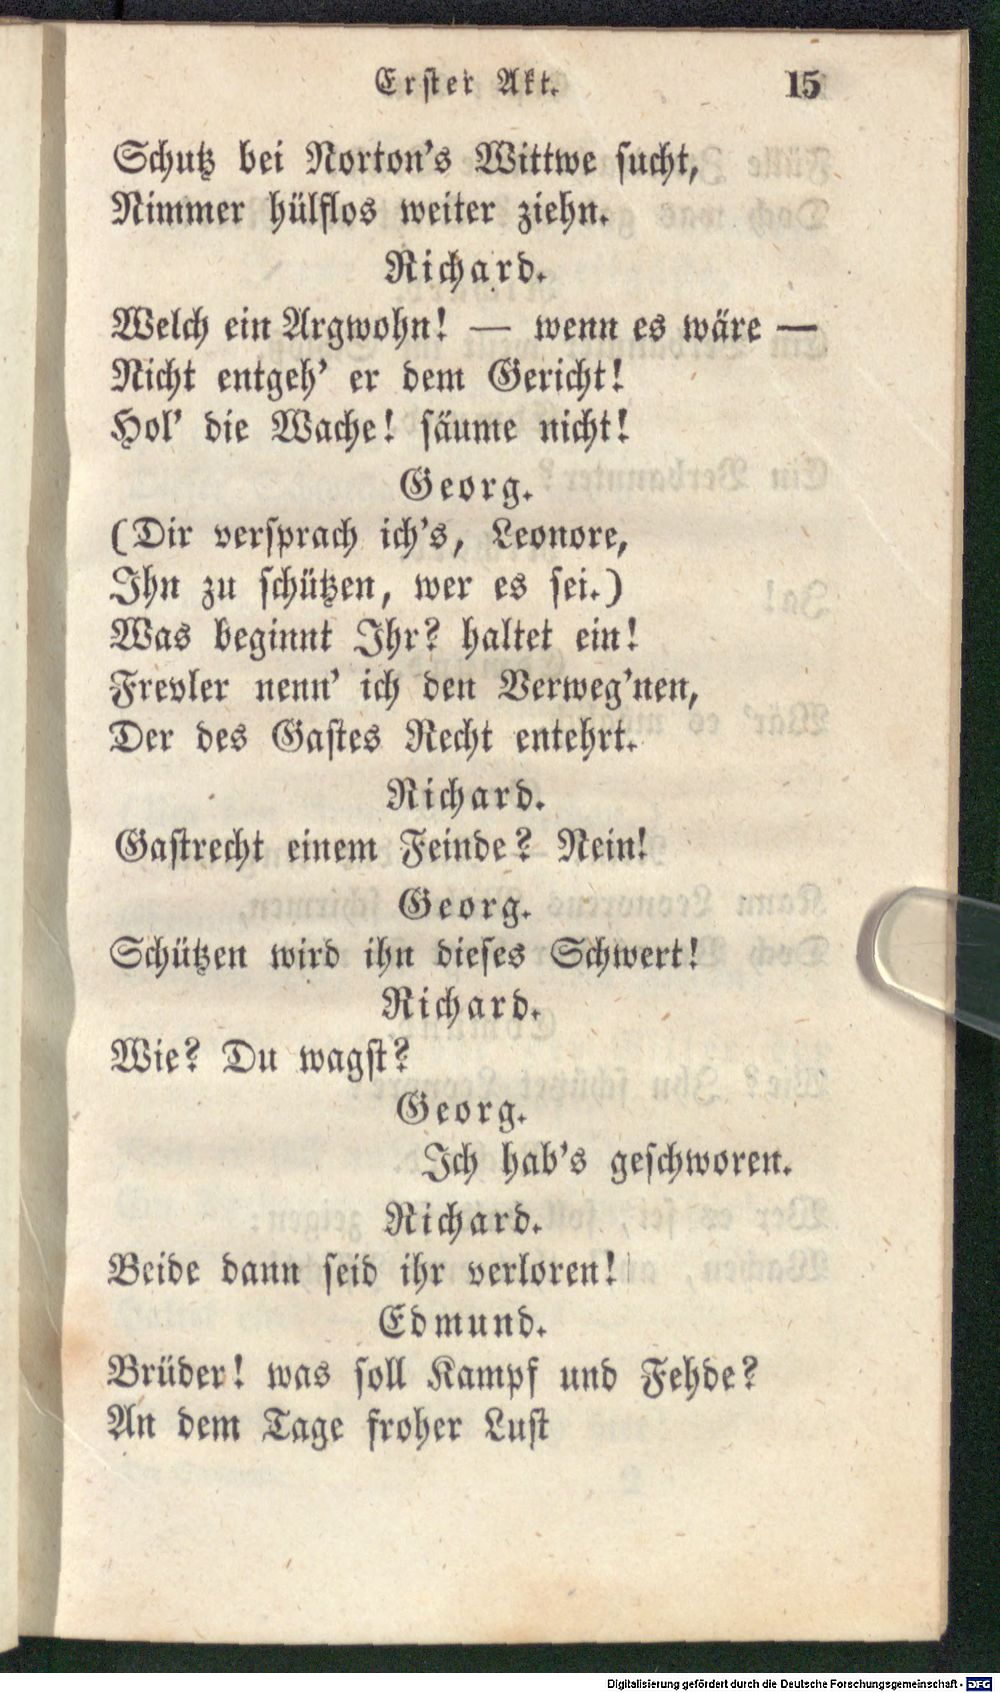 Erster Akt. 15
Schutz bei Norton's Wittwe sucht,
Nimmer hülflos weiter ziehn.
Richard.
Welch ein Argwohn! — wenn es wäre —
Nicht entgeh' er dem Gericht!
Hol' die Wache! säume nicht!
Georg.
(Dir versprach ich's, Leonore,
Ihn zu schützen, wer es sei.)
Was beginnt Ihr? haltet ein!
Frevler nenn' ich den Verweg'nen,
Der des Gastes Recht entehrt.
Richard.
Gastrecht einem Feinde? Nein!
Georg.
Schützen wird ihn dieses Schwert!
Richard.
Wie? Du wagst?
Georg.
Ich hab's geschworen.
Richard.
Beide dann seid ihr verloren!
Edmund.
Brüder! was soll Kampf und Fehde?
An dem Tage froher Lust
Digitalisierung gefördert durch die Deutsche Forschungsgemeinschaft - DFG